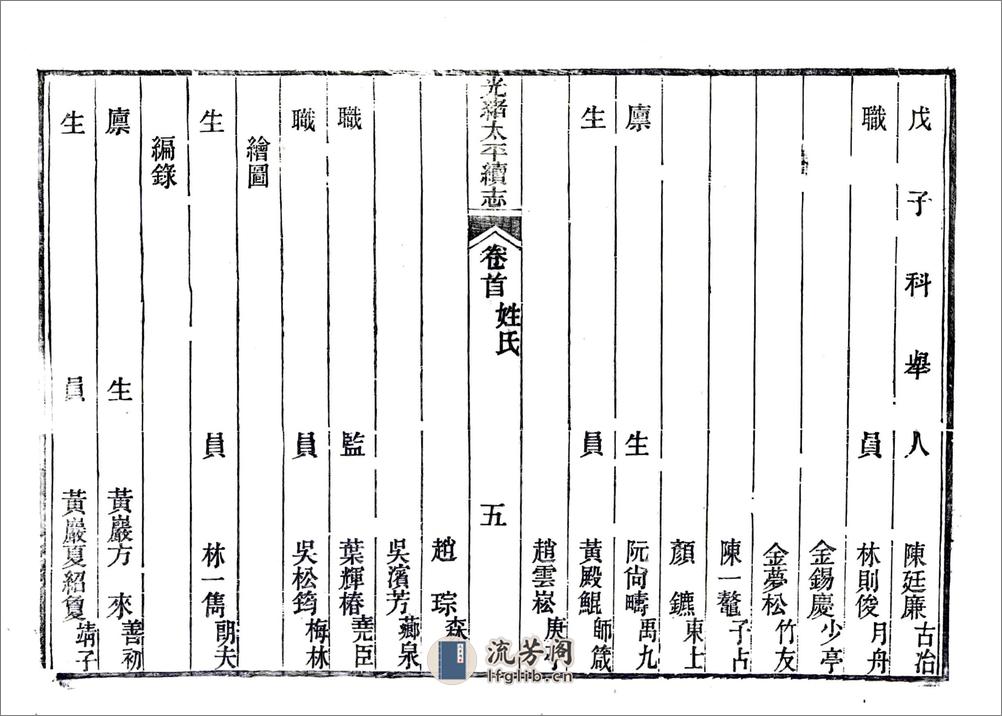 戊子科舉人 陳廷廉 古治
職員 林則俊 月舟
金錫慶 少亭
金夢松 竹友
陳一鼇 子占
顏鑣 東上
廪生 阮尙疇 禹九
生員 黃殿鯤 師箴
趙雲崧 庚
光緒太平續志 卷首 姓氏 五
趙琮 森
吳濱芳 薌泉
職監 葉輝椿 堯臣
職員 吳松筠 梅林
繪圖
生員 林一雋 朗夫
編錄
廪生 黃巖方來 善初
生員 黃巖夏紹夐 靖子
流芳阁
lfglib.cn